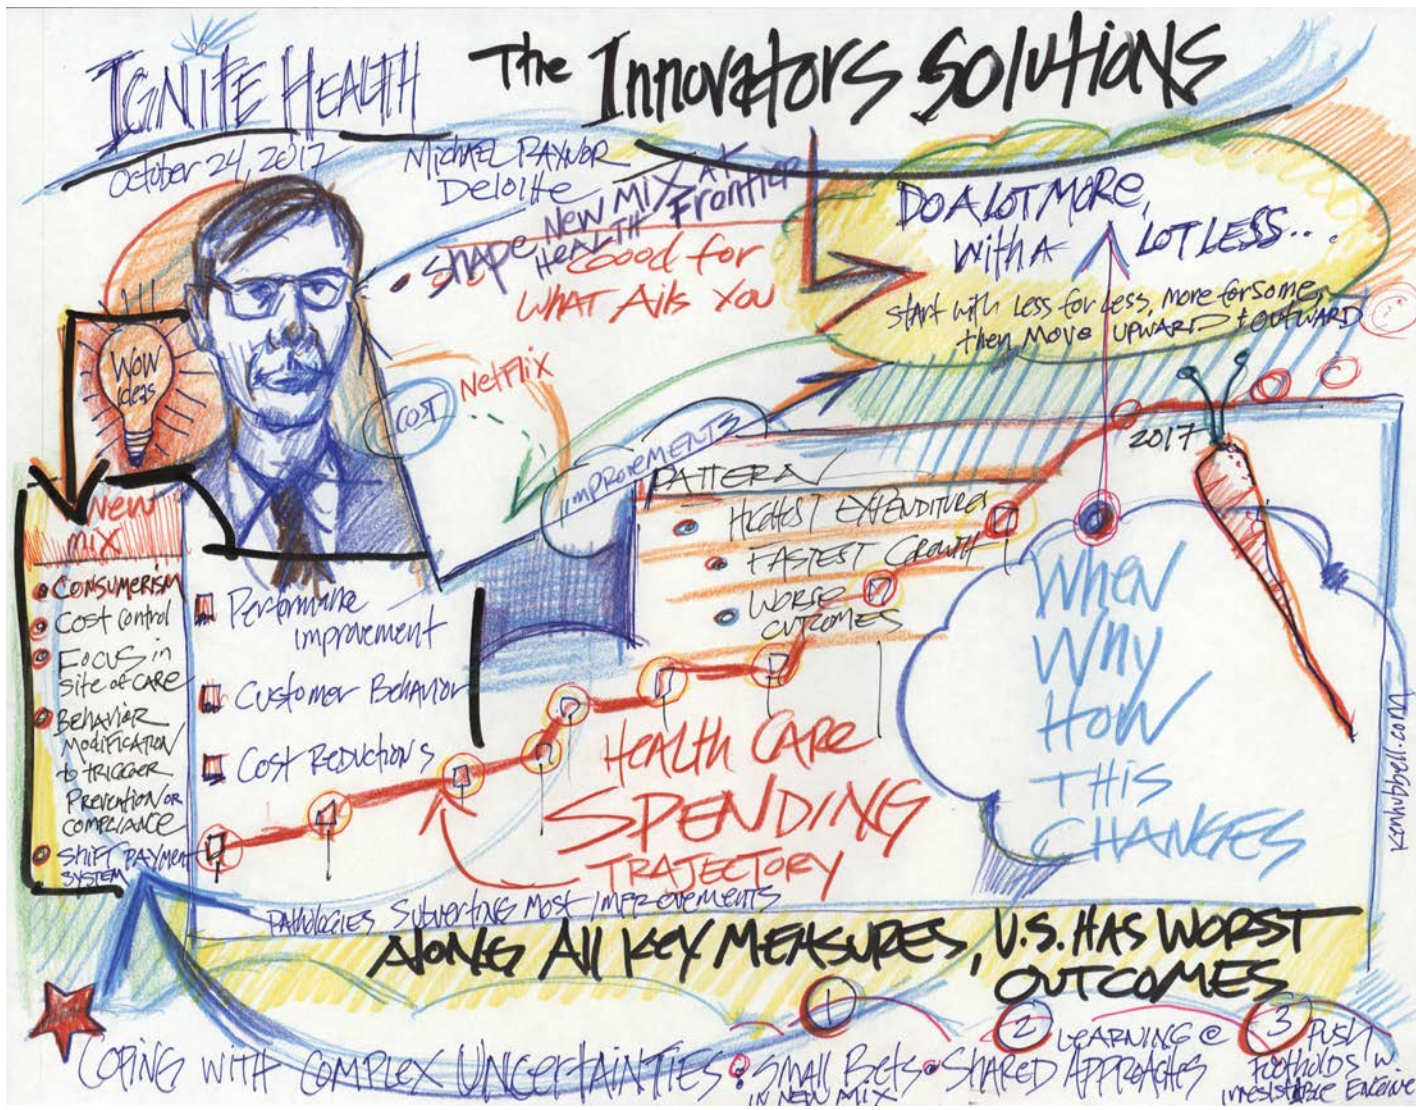 IGNITE HEALTH
October 24, 2017
The Innovators Solutions
MICHAEL RAYNOR
Deloitte
• SHAPE NEW MIX AT
HEALTH Frontier
Good for
WHAT Ails You
DO A LOT MORE,
WITH A LOT LESS...
start with Less for Less, more for some,
then move UPWARD + OUTWARD
WOW
Ideas
COST
NETFLIX
IMPROVEMENTS
2017
PATTERN
HIGHEST EXPENDITURES
FASTEST GROWTH
WORSE
OUTCOMES
New
mix
CONSUMERISM
Cost Control
FOCUS in
site of CARE
BEHAVIOR
MODIFICATION
to TRIGGER
Prevention OR
COMPLIANCE
Shift PAYMENT
SYSTEM
Performance
improvement
Customer Behavior
Cost Reductions
HEALTH CARE
SPENDING
TRAJECTORY
When
Why
How
THIS
CHANGES
kenhubbell.com
PATHOLOGIES SUBVERTING MOST IMPROVEMENTS
ALONG All KEY MEASURES, U.S. HAS WORST
OUTCOMES
1
2
3
COPING WITH COMPLEX UNCERTAINTIES • SMALL BETS • SHARED APPROACHES
IN NEW MIX
LEARNING @
PUSH
Footholds w.